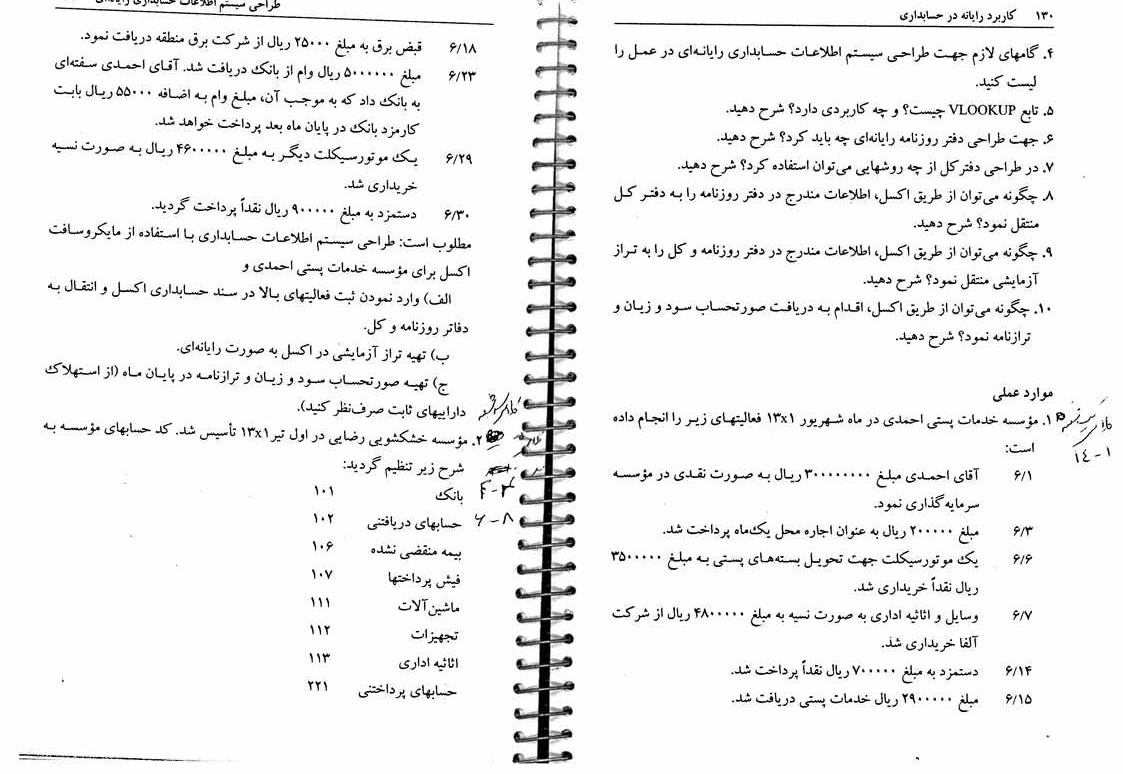 ۱۳۰ کاربرد رایانه در حسابداری
۴. گامهای لازم جهت طراحی سیستم اطلاعات حسابداری رایانه‌ای در عمل را
لیست کنید.
۵. تابع VLOOKUP چیست؟ و چه کاربردی دارد؟ شرح دهید.
۶. جهت طراحی دفتر روزنامه رایانه‌ای چه باید کرد؟ شرح دهید.
۷. در طراحی دفترکل از چه روشهایی می‌توان استفاده کرد؟ شرح دهید.
۸. چگونه می‌توان از طریق اکسل، اطلاعات مندرج در دفتر روزنامه را به دفتر کل
منتقل نمود؟ شرح دهید.
۹. چگونه می‌توان از طریق اکسل، اطلاعات مندرج در دفتر روزنامه و کل را به تراز
آزمایشی منتقل نمود؟ شرح دهید.
۱۰. چگونه می‌توان از طریق اکسل، اقدام به دریافت صورتحساب سود و زیان و
ترازنامه نمود؟ شرح دهید.
موارد عملی
۱. مؤسسه خدمات پستی احمدی در ماه شهریور ۱۳x۱ فعالیتهای زیر را انجام داده
است:
۱۴-۱
۶/۱ آقای احمدی مبلغ ۳۰۰۰۰۰۰۰۰ ریال به صورت نقدی در مؤسسه
سرمایه‌گذاری نمود.
۶/۳ مبلغ ۲۰۰۰۰۰ ریال به عنوان اجاره محل یک‌ماه پرداخت شد.
۶/۶ یک موتورسیکلت جهت تحویل بسته‌های پستی به مبلغ ۳۵۰۰۰۰۰
ریال نقداً خریداری شد.
۶/۷ وسایل و اثاثیه اداری به صورت نسیه به مبلغ ۴۸۰۰۰۰۰ ریال از شرکت
آلفا خریداری شد.
۶/۱۴ دستمزد به مبلغ ۷۰۰۰۰۰ ریال نقداً پرداخت شد.
۶/۱۵ مبلغ ۲۹۰۰۰۰۰ ریال خدمات پستی دریافت شد.
طراحی سیستم اطلاعات حسابداری رایانه‌ای
۶/۱۸ قبض برق به مبلغ ۲۵۰۰۰ ریال از شرکت برق منطقه دریافت نمود.
۶/۲۳ مبلغ ۵۰۰۰۰۰۰ ریال وام از بانک دریافت شد. آقای احمدی سفته‌ای
به بانک داد که به موجب آن، مبلغ وام به اضافه ۵۵۰۰۰ ریال بابت
کارمزد بانک در پایان ماه بعد پرداخت خواهد شد.
۶/۲۹ یک موتورسیکلت دیگر به مبلغ ۴۶۰۰۰۰۰ ریال به صورت نسیه
خریداری شد.
۶/۳۰ دستمزد به مبلغ ۹۰۰۰۰۰ ریال نقداً پرداخت گردید.
مطلوب است: طراحی سیستم اطلاعات حسابداری با استفاده از مایکروسافت
اکسل برای مؤسسه خدمات پستی احمدی و
الف) وارد نمودن ثبت فعالیتهای بالا در سند حسابداری اکسل و انتقال به
دفاتر روزنامه و کل.
ب) تهیه تراز آزمایشی در اکسل به صورت رایانه‌ای.
ج) تهیه صورتحساب سود و زیان و ترازنامه در پایان ماه (از استهلاک
داراییهای ثابت صرف‌نظر کنید).
۲. مؤسسه خشکشویی رضایی در اول تیر ۱۳x۱ تأسیس شد. کد حسابهای مؤسسه به
شرح زیر تنظیم گردید:
بانک ۱۰۱
حسابهای دریافتنی ۱۰۲
بیمه منقضی نشده ۱۰۶
فیش پرداختها ۱۰۷
ماشین‌آلات ۱۱۱
تجهیزات ۱۱۲
اثاثیه اداری ۱۱۳
حسابهای پرداختنی ۲۲۱